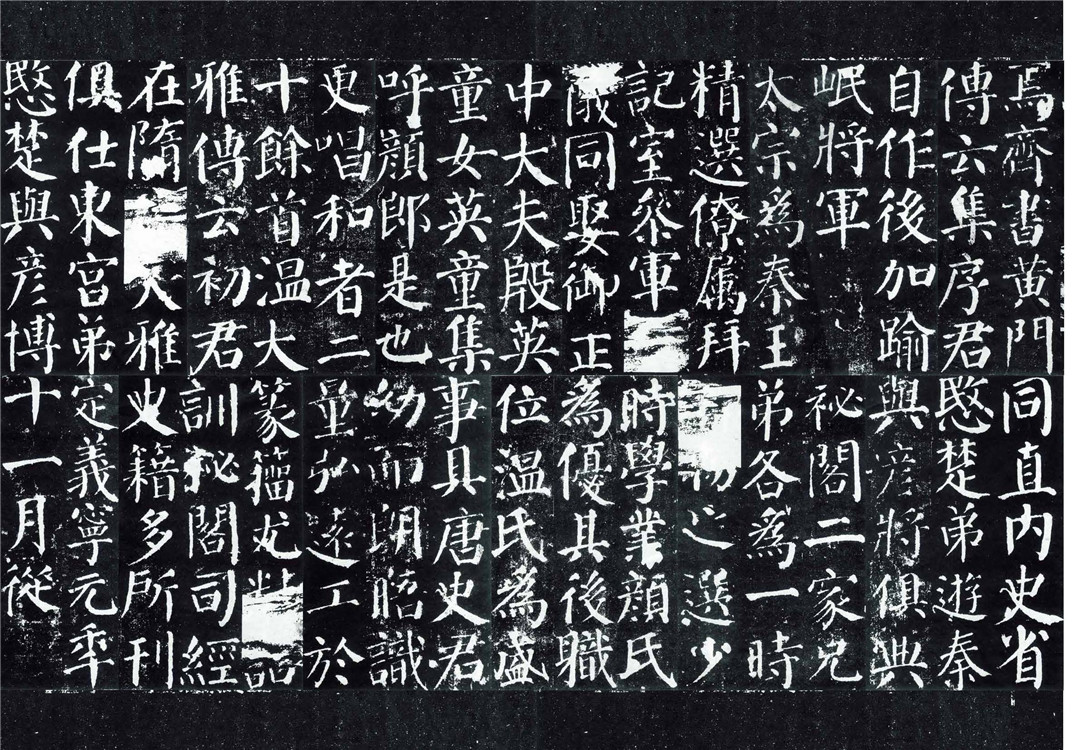 焉齊書黄門
傳云集序君
自作後加踰
岷將軍
太宗為秦王
精選僚属拜
記室叅軍
儀同娶御正
中大夫殷英
童女英童集
呼顔郎是也
更唱和者二
十餘首温大
雅傳云初君
在隋大雅
俱仕東宫弟
愍楚與彦博
同直内史省
愍楚弟遊秦
與彦將俱典
祕閣二家兄
弟各為一時
物之選少
時學業顔氏
為優其後職
位温氏為盛
事具唐史君
幼而朗晤識
量弘遠工於
篆籀尤詁
訓秘閣司經
史籍多所刊
定義寧元年
十一月從